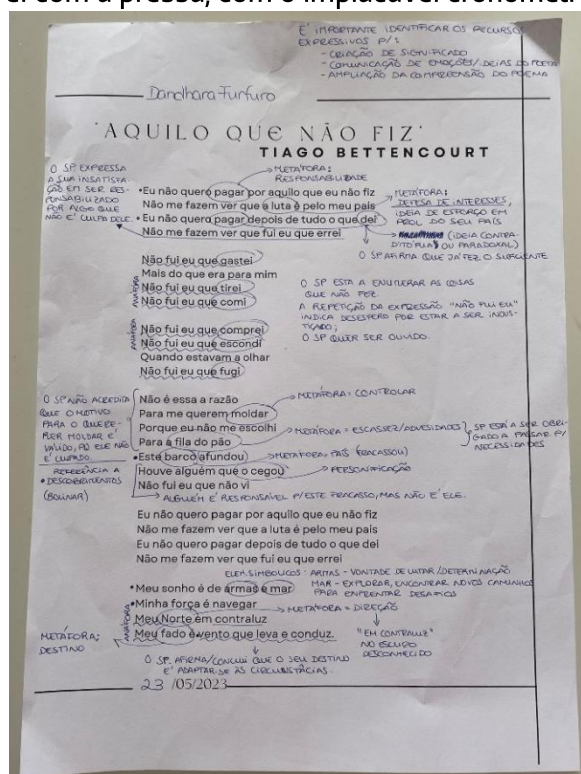 ei com a pressa, com o implacável cronómet
É IMPORTANTE IDENTIFICAR OS RECURSOS
EXPRESSIVOS P/:
- CRIAÇÃO DE SIGNIFICADO
- COMUNICAÇÃO DE EMOÇÕES/IDEIAS DO POETA
- AMPLIAÇÃO DA COMPREENSÃO DO POEMA
Dandhara Furfuro
"AQUILO QUE NÃO FIZ"
TIAGO BETTENCOURT
O SP EXPRESSA
A SUA INSATISFA-
ÇÃO EM SER RES-
PONSABILIZADO
POR ALGO QUE
NÃO É CULPA DELE.
METÁFORA:
RESPONSABILIDADE
• Eu não quero pagar por aquilo que eu não fiz
Não me fazem ver que a luta é pelo meu país
• Eu não quero pagar depois de tudo o que dei
Não me fazem ver que fui eu que errei
METÁFORA:
DEFESA DE INTERESSES,
IDEIA DE ESFORÇO EM
PROL DO SEU PAÍS
(IDEIA CONTRA-
DITÓRIA OU PARADOXAL)
O SP AFIRMA QUE JÁ FEZ O SUFICIENTE
ANÁFORA
Não fui eu que gastei
Mais do que era para mim
Não fui eu que tirei
Não fui eu que comi
O SP ESTÁ A ENUMERAR AS COISAS
QUE NÃO FEZ
A REPETIÇÃO DA EXPRESSÃO "NÃO FUI EU"
INDICA DESESPERO POR ESTAR A SER INJUS-
TIÇADO;
O SP QUER SER OUVIDO.
ANÁFORA
Não fui eu que comprei
Não fui eu que escondi
Quando estavam a olhar
Não fui eu que fugi
O SP NÃO ACREDITA
QUE O MOTIVO
PARA O QUERE-
REM MOLDAR É
VÁLIDO, POIS ELE NÃO
É CULPADO.
Não é essa a razão
Para me querem moldar
Porque eu não me escolhi
Para a fila do pão
• Este barco afundou
Houve alguém que o cegou
Não fui eu que não vi
METÁFORA: CONTROLAR
METÁFORA = ESCASSEZ/ADVERSIDADES
SP ESTÁ A SER OBRI-
GADO A PASSAR P/
NECESSIDADES
METÁFORA: PAÍS (FRACASSOU)
PERSONIFICAÇÃO
ALGUÉM É RESPONSÁVEL P/ESTE FRACASSO, MAS NÃO É ELE.
REFERÊNCIA A
• DESCOBRIMENTOS
(BOLINAR)
Eu não quero pagar por aquilo que eu não fiz
Não me fazem ver que a luta é pelo meu país
Eu não quero pagar depois de tudo o que dei
Não me fazem ver que fui eu que errei
ELEM. SIMBÓLICOS: ARMAS - VONTADE DE LUTAR/DETERMINAÇÃO
MAR - EXPLORAR, ENCONTRAR NOVOS CAMINHOS
PARA ENFRENTAR DESAFIOS
• Meu sonho é de armas e mar
• Minha força é navegar
Meu Norte em contraluz
Meu fado é vento que leva e conduz.
ANÁFORA
METÁFORA = DIREÇÃO
"EM CONTRALUZ"
NO ESCURO
DESCONHECIDO
METÁFORA:
DESTINO
O SP. AFIRMA/CONCLUI QUE O SEU DESTINO
É ADAPTAR-SE ÀS CIRCUNSTÂCIAS.
23 /05/2023